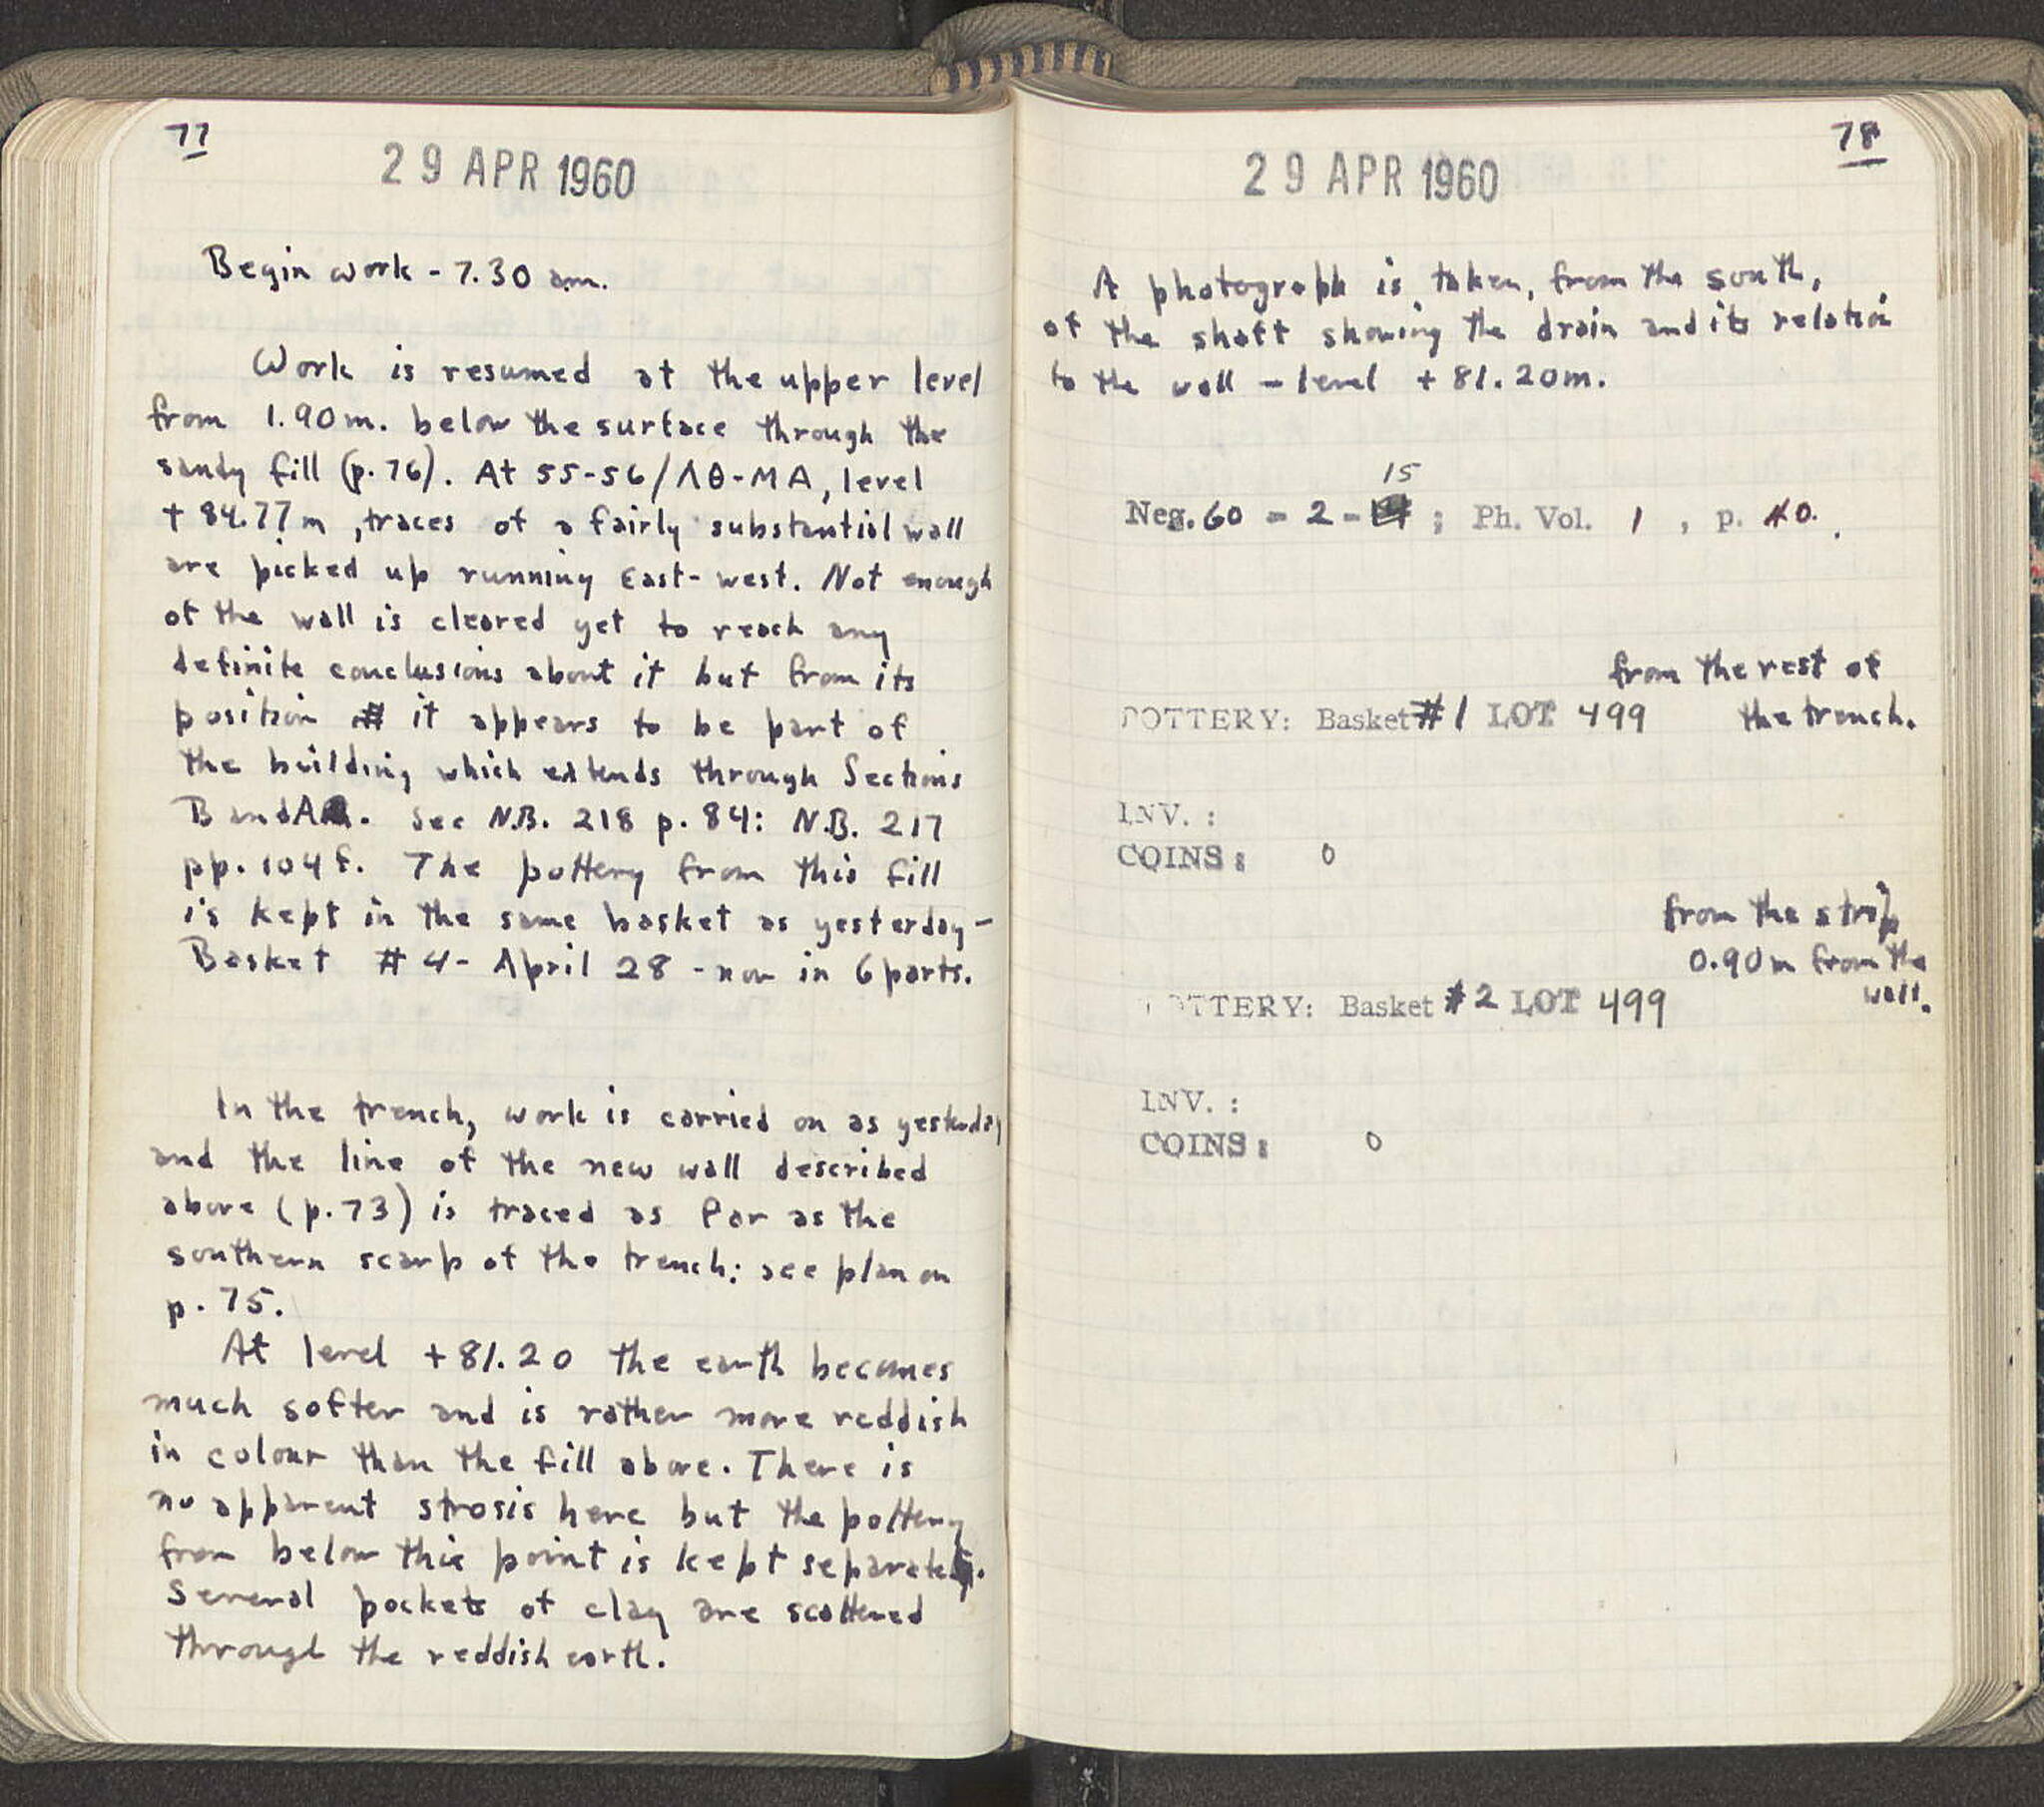 77
29 APR 1960
Begin work - 7.30 am.
Work is resumed at the upper level
from 1.90m. below the surface through the
sandy fill (p.76). At 55-56/ΛΘ-ΜΑ, level
+ 84.77m, traces of a fairly substantial wall
are picked up running East-west. Not enough
of the wall is cleared yet to reach any
definite conclusions about it but from its
position it appears to be part of
the building which extends through Sections
B and A. See N.B. 218 p. 84: N.B. 217
pp. 104 f. The pottery from this fill
is kept in the same basket as yesterday -
Basket # 4 - April 28 - now in 6 parts.
In the trench, work is carried on as yesterday
and the line of the new wall described
above (p.73) is traced as far as the
southern scarp of the trench: see plan on
p. 75.
At level + 81.20 the earth becomes
much softer and is rather more reddish
in colour than the fill above. There is
no apparent strosis here but the pottery
from below this point is kept separate.
Several pockets of clay are scattered
through the reddish earth.
78
29 APR 1960
A photograph is taken, from the south,
of the shaft showing the drain and its relation
to the wall - level + 81.20m.
15
Neg. 60 - 2 - ; Ph. Vol. 1 , p. 40.
from the rest of
POTTERY: Basket #1 LOT 499 the trench.
INV. :
COINS: 0
from the strip
0.90m from the
wall.
POTTERY: Basket #2 LOT 499
INV. :
COINS: 0